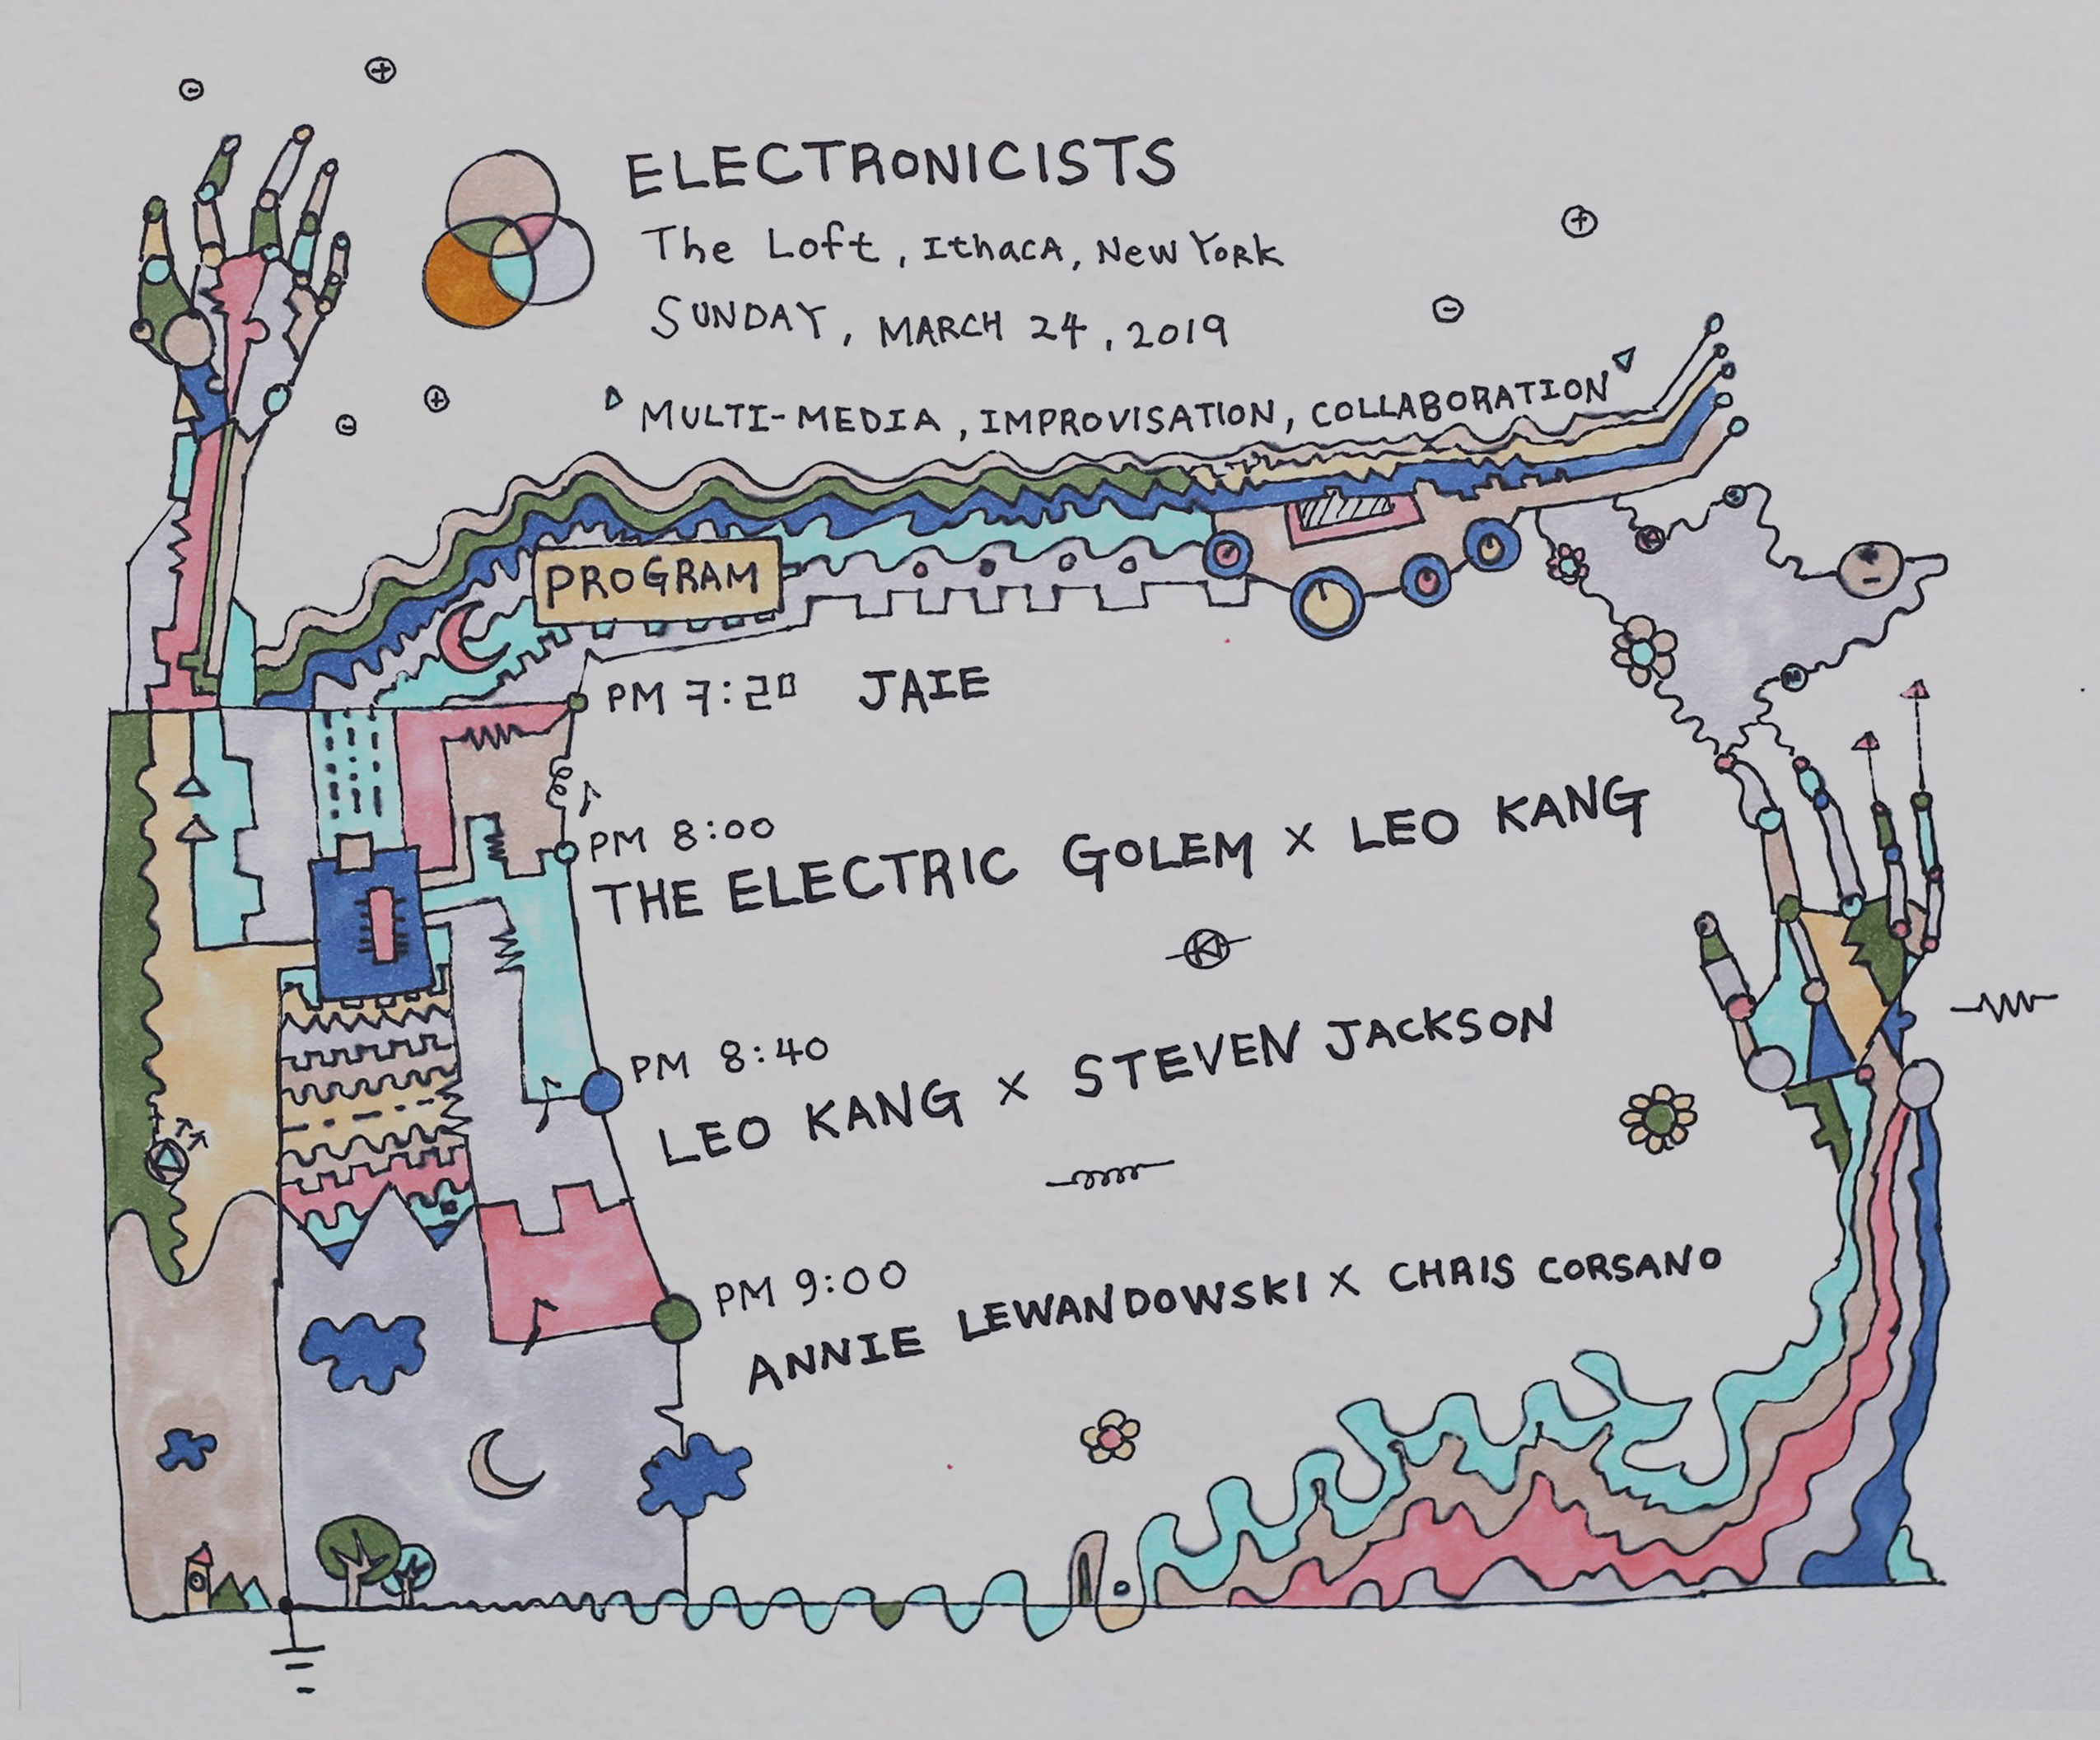 ELECTRONICISTS
The Loft, IthacA, New YoRk
SUNDAY, MARCH 24, 2019
MULTI-MEDIA, IMPROVISATION, COLLABORATION
PROGRAM
PM 7:20 JAIE
PM 8:00
THE ELECTRIC GOLEM X LEO KANG
PM 8:40
LEO KANG X STEVEN JACKSON
PM 9:00
ANNIE LEWANDOWSKI X CHRIS CORSANO